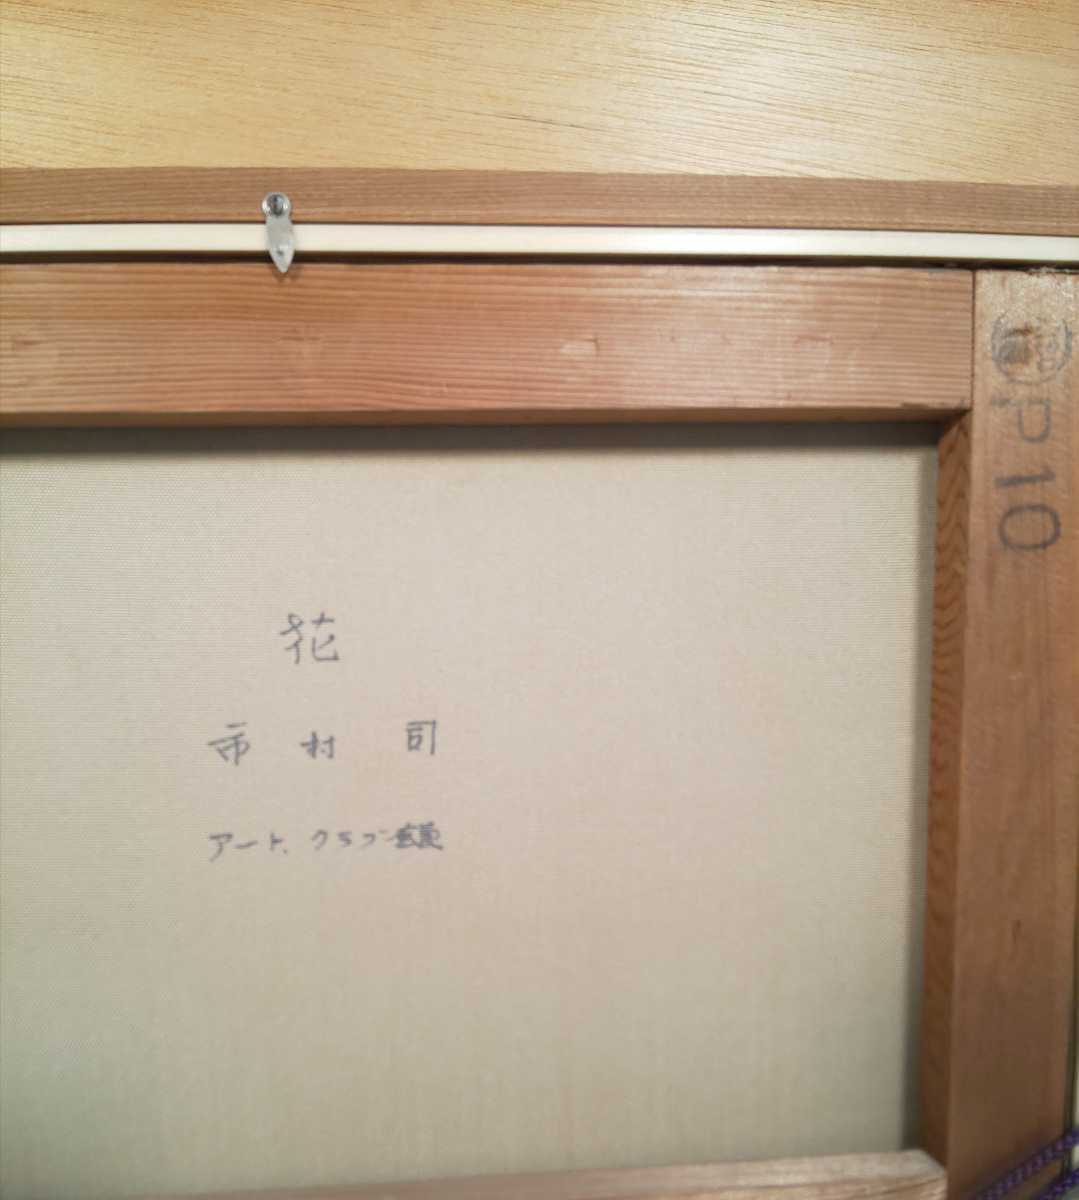 花
市村 司
アート、クラブ
P10